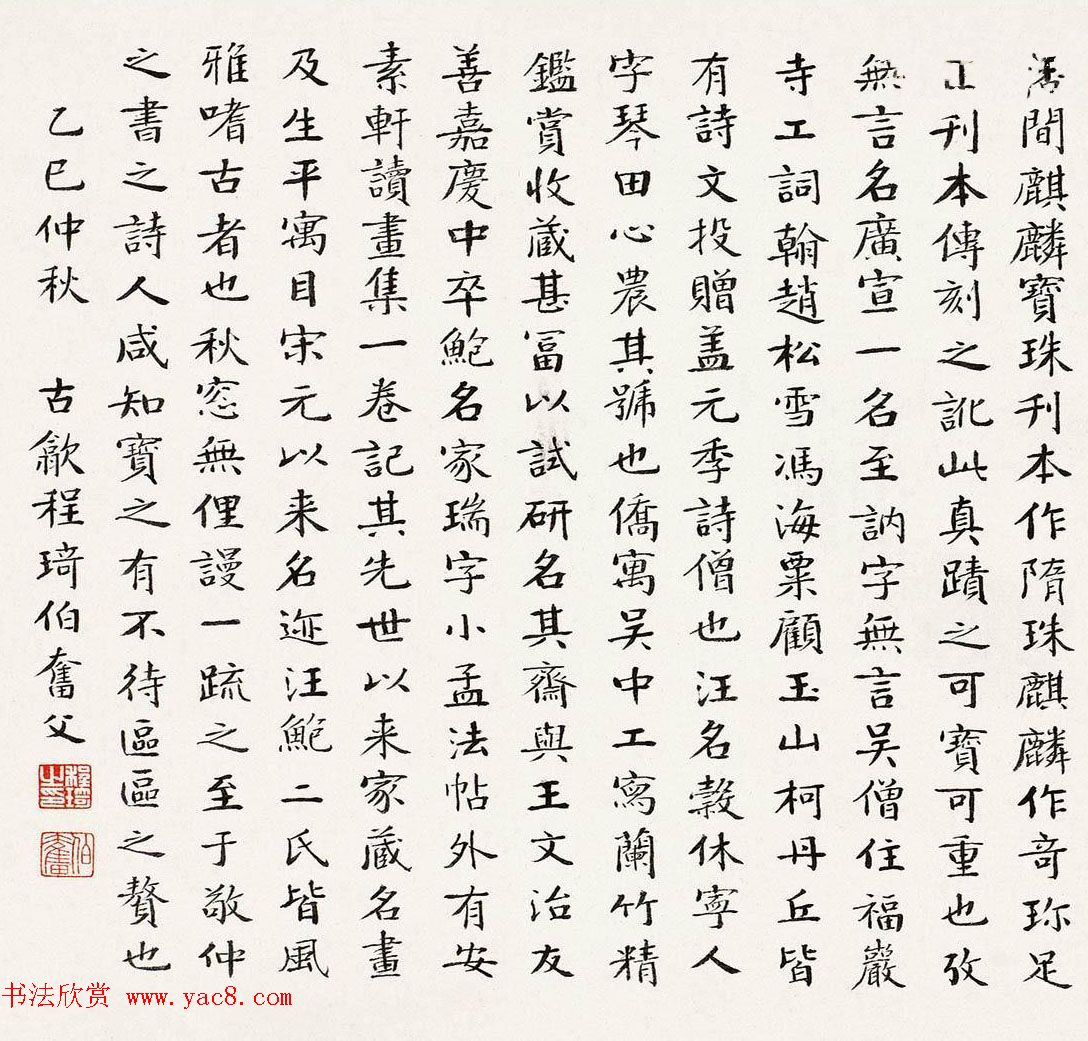 間麒麟寶珠刊本作隋珠麒麟作奇珎足
正刊本傳刻之訛此真蹟之可寶可重也攷
無言名廣宣一名至訥字無言吴僧住福巖
寺工詞翰趙松雪馮海粟顧玉山柯丹丘皆
有詩文投贈盖元季詩僧也汪名糓休寧人
字琴田心農其號也僑寓吴中工寫蘭竹精
鑑賞收蔵甚冨以試研名其齋與王文治友
善嘉慶中卒鮑名家瑞字小孟法帖外有安
素軒讀畫集一卷記其先世以来家蔵名畫
及生平寓目宋元以来名迹汪鮑二氏皆風
雅嗜古者也秋窓無俚謾一疏之至于敬仲
之書之詩人咸知寶之有不待區區之贅也
乙巳仲秋 古歙程琦伯奮父
程琦之印
伯奮
书法欣赏 www.yac8.com